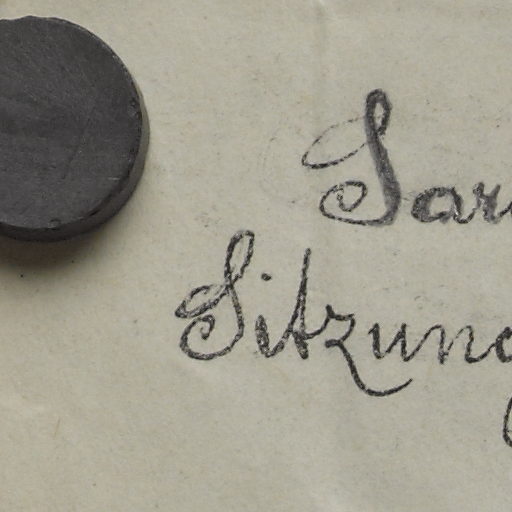 Sar
Sitzung